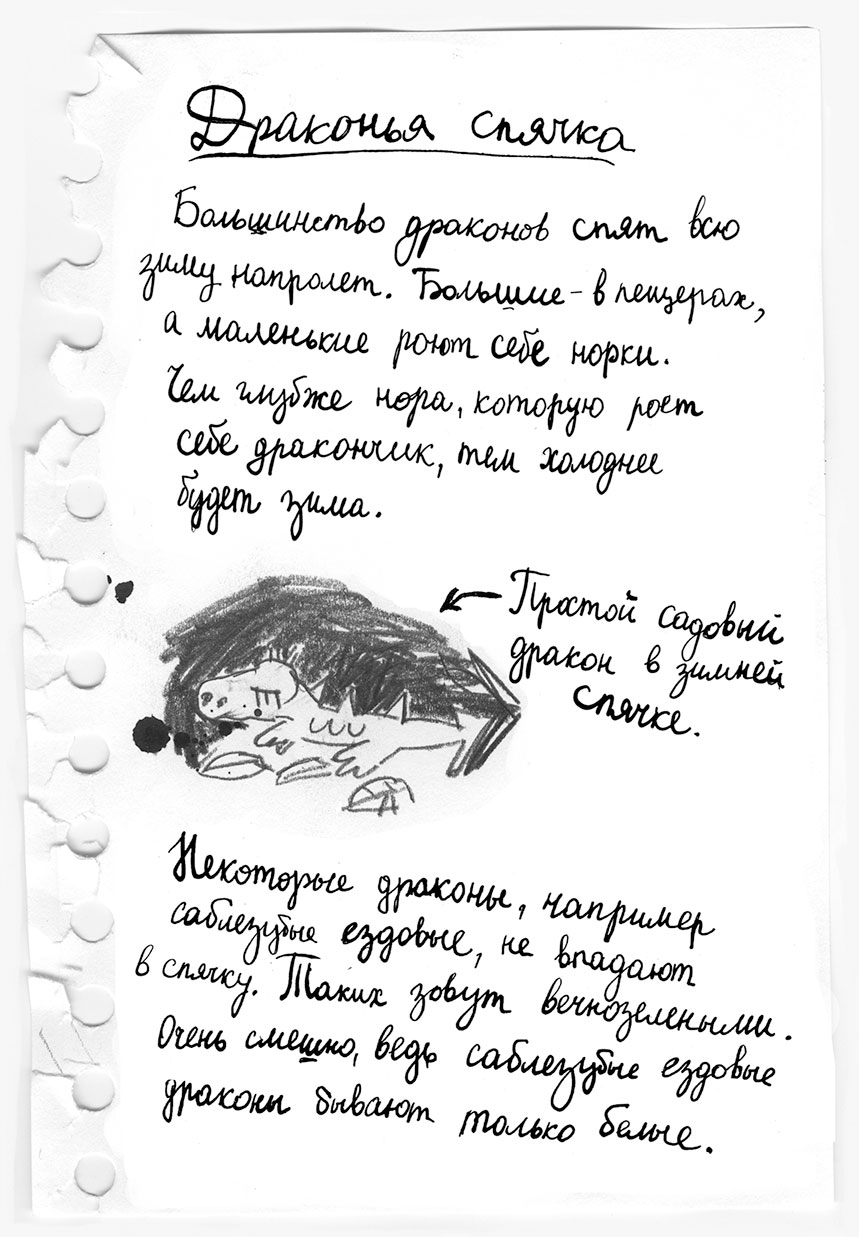 Драконья спячка
Большинство драконов спят всю
зиму напролет. Большие - в пещерах,
а маленькие роют себе норки.
Чем глубже нора, которую роет
себе дракончик, тем холоднее
будет зима.
Простой садовый
дракон в зимней
спячке.
Некоторые драконы, например
саблезубые ездовые, не впадают
в спячку. Таких зовут вечнозелеными.
Очень смешно, ведь саблезубые ездовые
драконы бывают только белые.